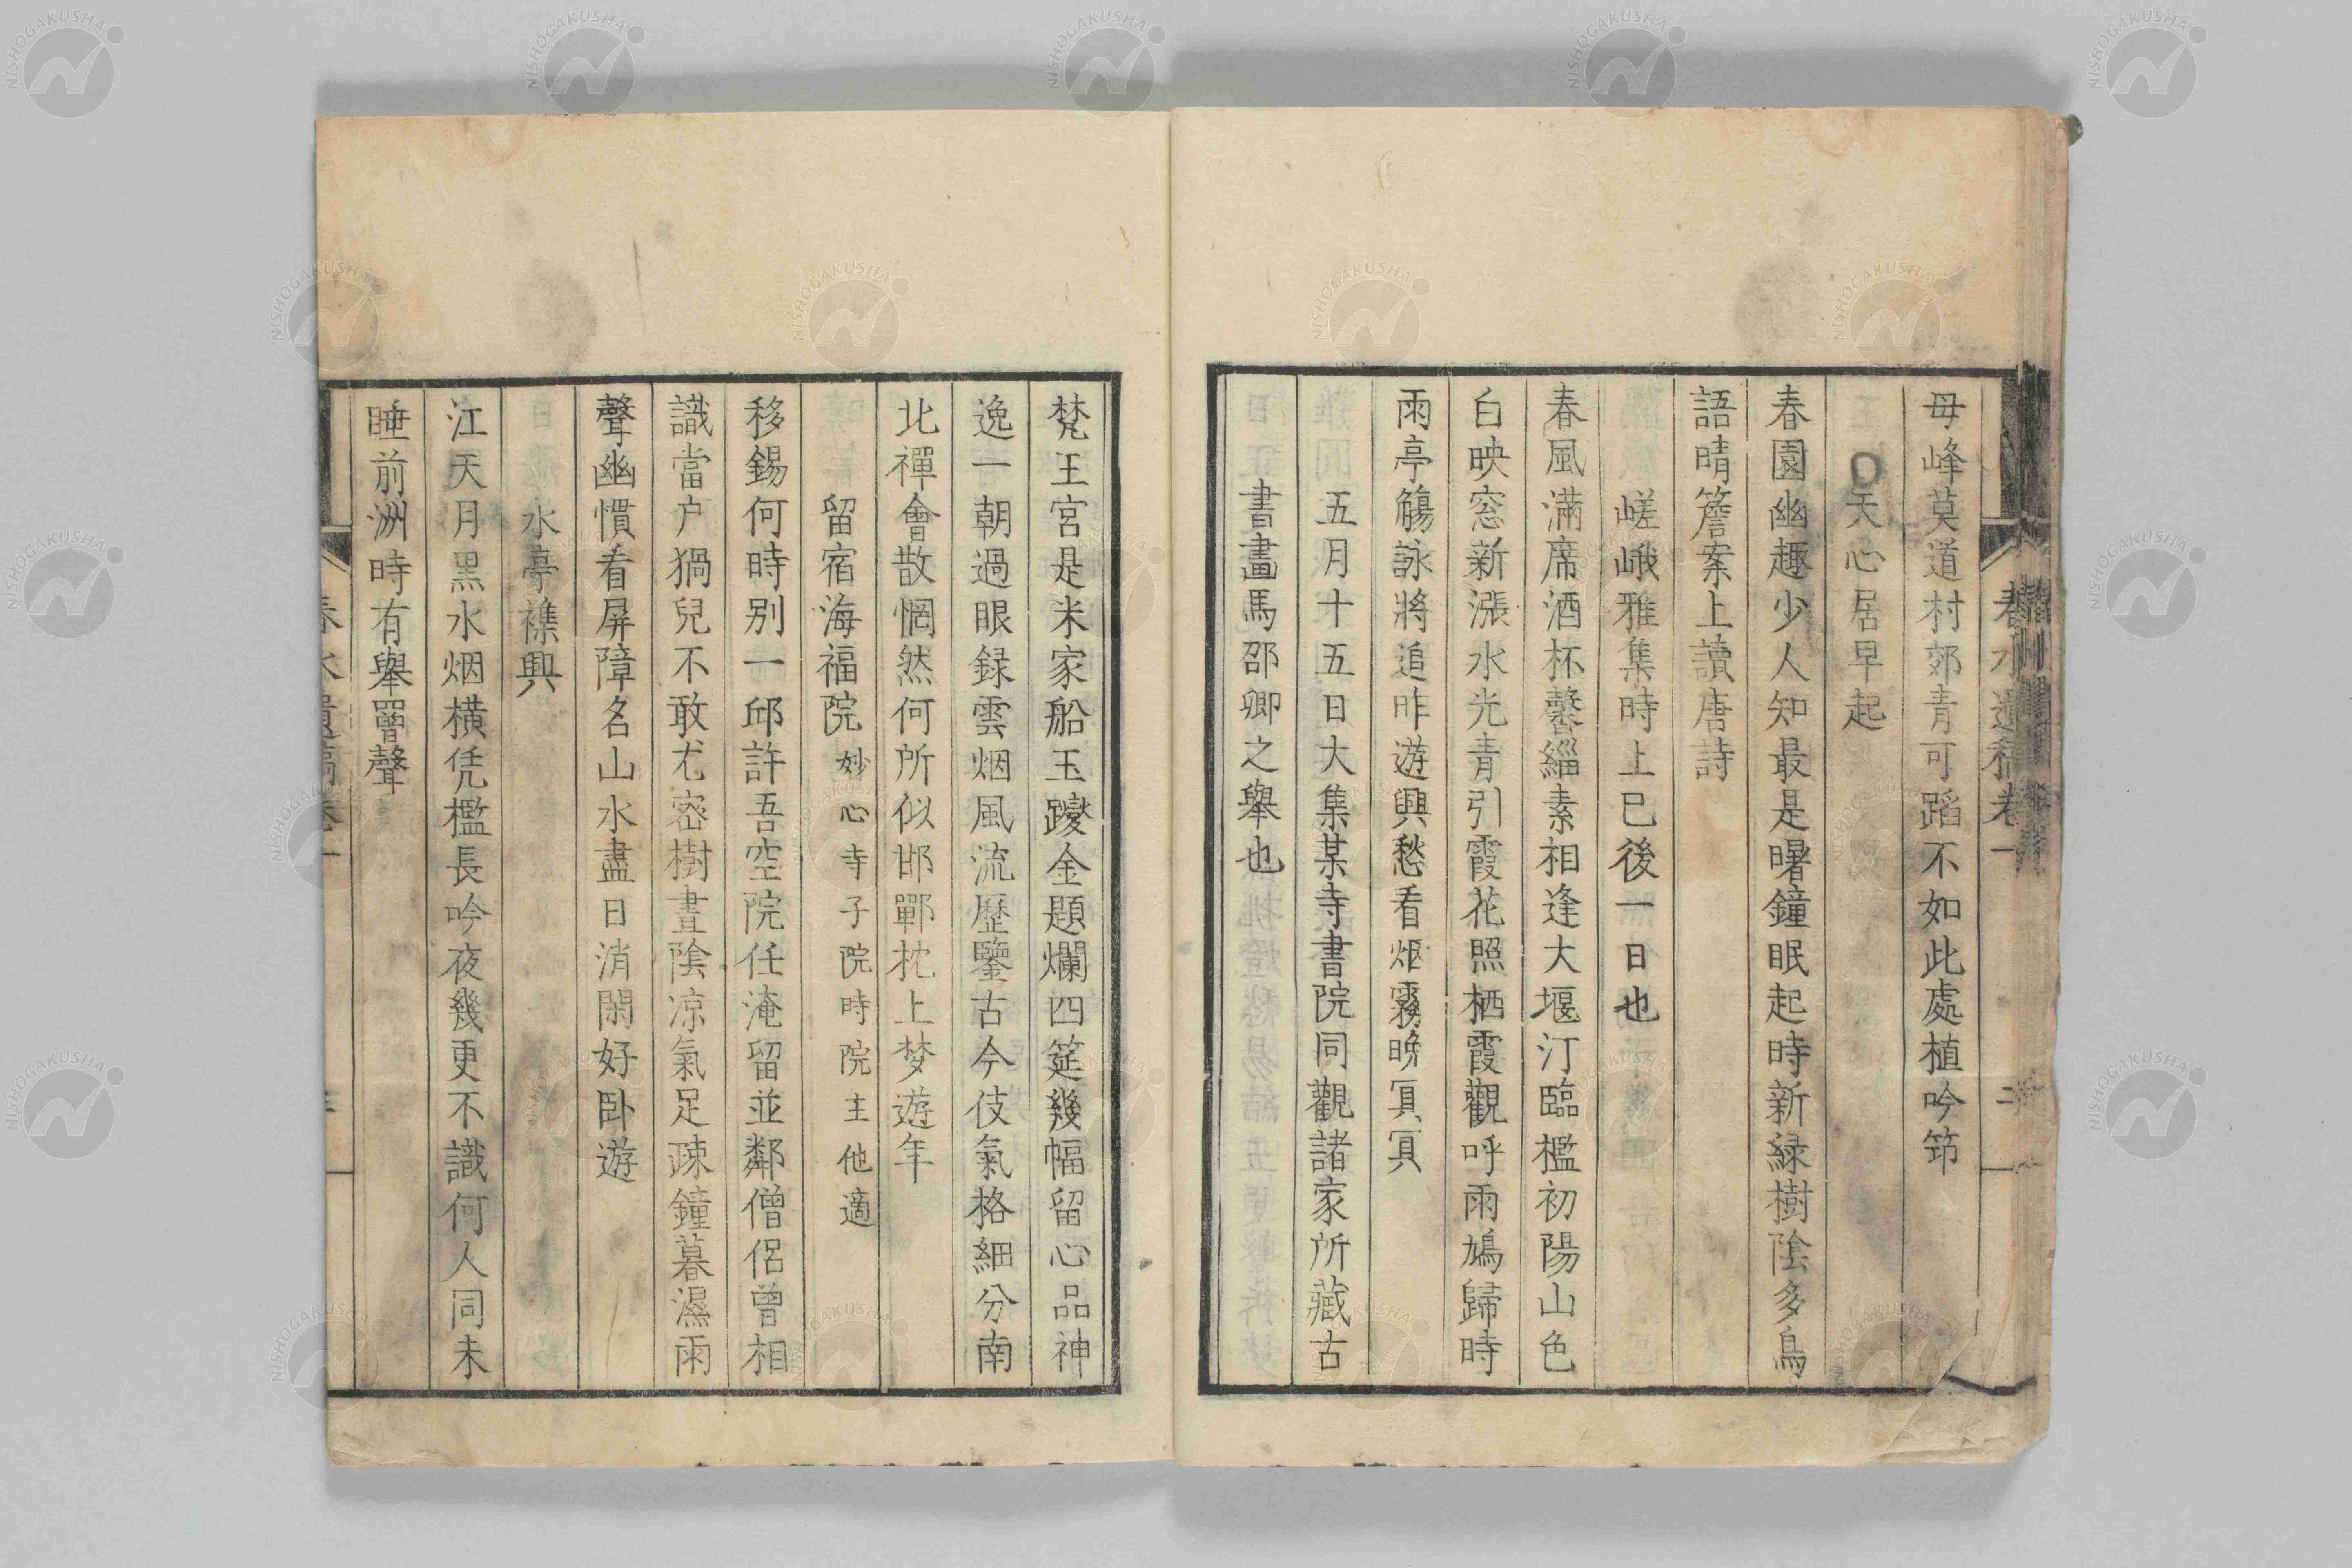 春水遺稿卷一
二
毋峰莫道村郊青可蹈不如此處植吟筇
天心居早起
春園幽趣少人知最是曙鐘眠起時新緑樹陰多鳥
語晴簷案上讀唐詩
嵯峨雅集時上巳後一日也
春風滿席酒杯馨緇素相逢大堰汀臨檻初陽山色
白映窓新漲水光青引霞花照栖霞觀呼雨鳩歸時
雨亭觴詠將追昨遊興愁看烟霧晚冥冥
五月十五日大集某寺書院同觀諸家所藏古
書畫馬邵卿之舉也
梵王宮是米家船玉躞金題爛四筵幾幅留心品神
逸一朝過眼録雲烟風流歷鑒古今伎氣格細分南
北禪會散惘然何所似邯鄲枕上梦遊年
留宿海福院 妙心寺子院時院主他適
移錫何時別一邱許吾空院任淹留並鄰僧侶曾相
識當户猧兒不敢尤密樹晝陰凉氣足疎鐘暮濕雨
聲幽慣看屏障名山水盡日消閑好卧遊
水亭襍興
江天月黒水烟横凭檻長吟夜幾更不識何人同未
睡前洲時有舉罾聲
春水遺稿卷一